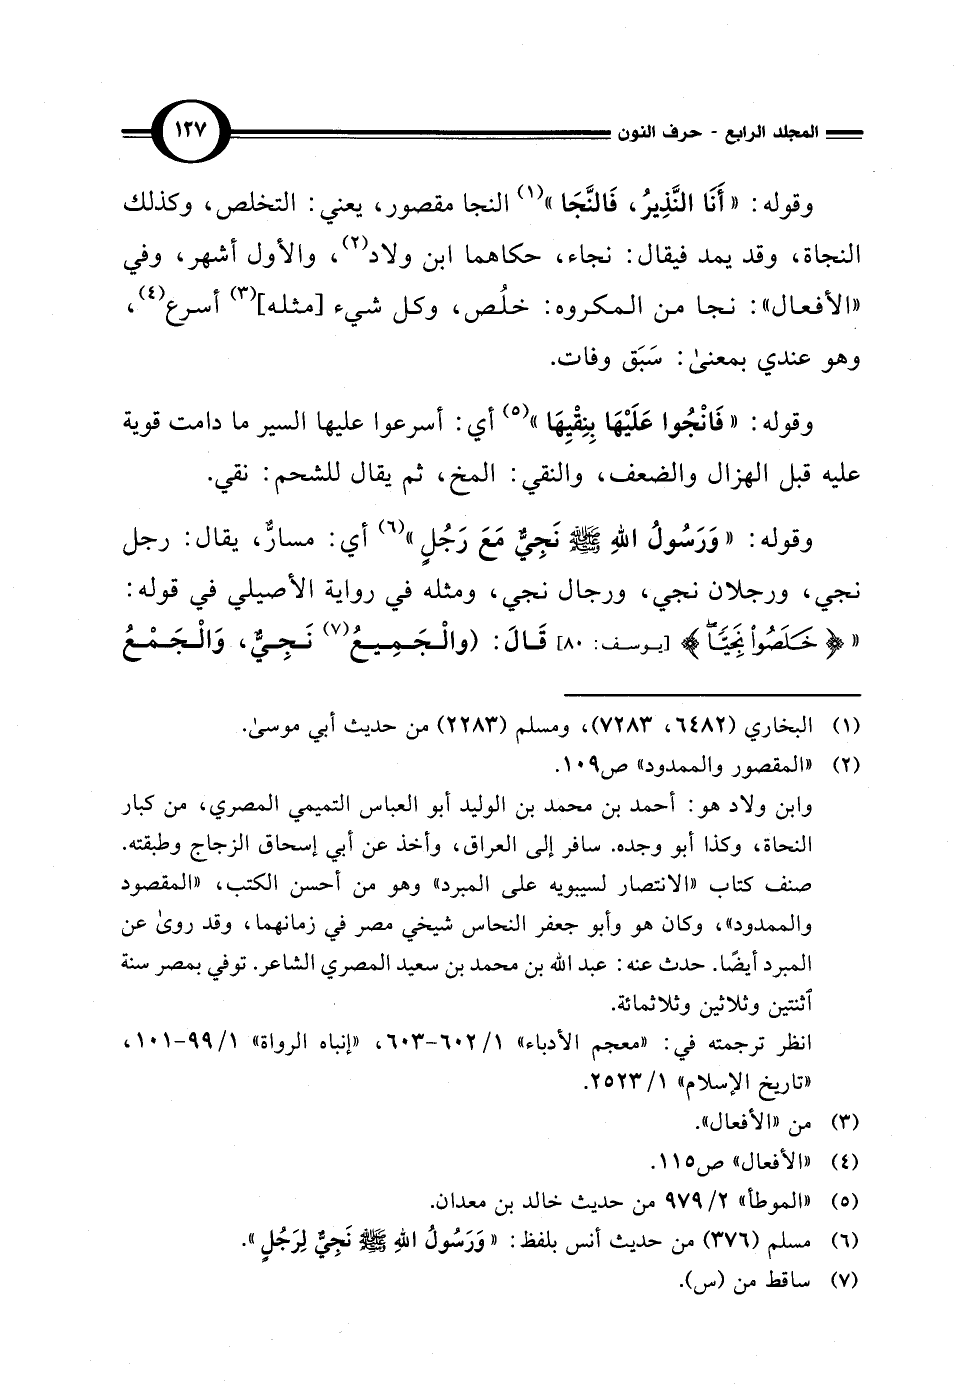 المجلد الرابع - حرف النون ١٢٧
وقوله: «أَنَا النَّذِيرُ، فَالنَّجَا»(١) النجا مقصور، يعني: التخلص، وكذلك
النجاة، وقد يمد فيقال: نجاء، حكاهما ابن ولاد(٢)، والأول أشهر، وفي
«الأفعال»: نجا من المكروه: خلُص، وكل شيء [مثله](٣) أسرع(٤)،
وهو عندي بمعنىٰ: سَبَق وفات.
وقوله: «فَانْجُوا عَلَيْهَا بِنِقْيِهَا»(٥) أي: أسرعوا عليها السير ما دامت قوية
عليه قبل الهزال والضعف، والنقي: المخ، ثم يقال للشحم: نقي.
وقوله: «وَرَسُولُ اللهِ ﷺ نَجِيٌّ مَعَ رَجُلٍ»(٦) أي: مسارٌّ، يقال: رجل
نجي، ورجلان نجي، ورجال نجي، ومثله في رواية الأصيلي في قوله:
«﴿خَلَصُواْ نَجِيًّاۖ﴾ [يوسف: ٨٠] قَالَ: (والْجَمِيعُ(٧) نَجِيٌّ، وَالْجَمْعُ
(١) البخاري (٦٤٨٢، ٧٢٨٣)، ومسلم (٢٢٨٣) من حديث أبي موسىٰ.
(٢) «المقصور والممدود» ص١٠٩.
وابن ولاد هو: أحمد بن محمد بن الوليد أبو العباس التميمي المصري، من كبار
النحاة، وكذا أبو وجده. سافر إلى العراق، وأخذ عن أبي إسحاق الزجاج وطبقته.
صنف كتاب «الانتصار لسيبويه على المبرد» وهو من أحسن الكتب، «المقصود
والممدود»، وكان هو وأبو جعفر النحاس شيخي مصر في زمانهما، وقد روىٰ عن
المبرد أيضًا. حدث عنه: عبد الله بن محمد بن سعيد المصري الشاعر. توفي بمصر سنة
ٱثنتين وثلاثين وثلاثمائة.
انظر ترجمته في: «معجم الأدباء» ١/ ٦٠٢-٦٠٣، «إنباه الرواة» ١/ ٩٩-١٠١،
«تاريخ الإسلام» ١/ ٢٥٢٣.
(٣) من «الأفعال».
(٤) «الأفعال» ص١١٥.
(٥) «الموطأ» ٢/ ٩٧٩ من حديث خالد بن معدان.
(٦) مسلم (٣٧٦) من حديث أنس بلفظ: «وَرَسُولُ اللهِ ﷺ نَجِيٌّ لِرَجُلٍ».
(٧) ساقط من (س).